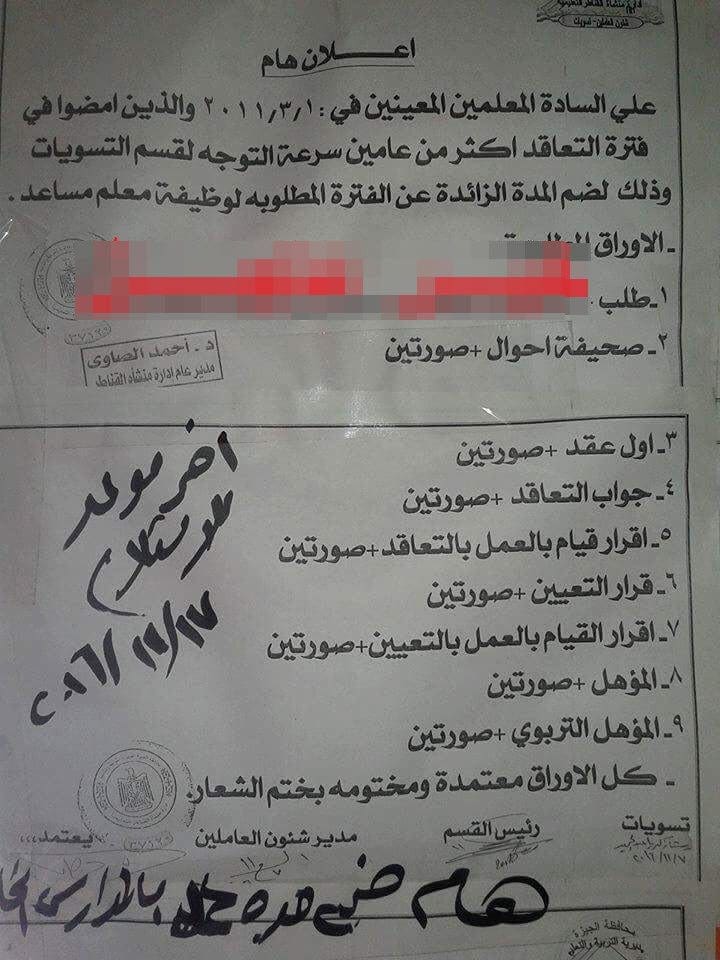 ادارة منشأة القناطر التعليمية
شئون العاملين - تسويات
اعـــلان هام
علي السادة المعلمين المعينين في : ٢٠١١/٣/١ والذين امضوا في
فترة التعاقد اكثر من عامين سرعة التوجه لقسم التسويات
وذلك لضم المدة الزائدة عن الفترة المطلوبه لوظيفة معلم مساعد .
ـ الاوراق المطلوبة
١ـ طلب .
٢ـ صحيفة احوال +صورتين
د. أحمد الصاوى
مدير عام ادارة منشأة القناطر
٣ـ اول عقد +صورتين
٤ـ جواب التعاقد +صورتين
٥ـ اقرار قيام بالعمل بالتعاقد+صورتين
٦ـ قرار التعيين +صورتين
٧ـ اقرار القيام بالعمل بالتعيين+صورتين
٨ـ المؤهل +صورتين
٩ـ المؤهل التربوي +صورتين
ـ كل الاوراق معتمدة ومختومه بختم الشعار.
اخر موعد
للاستلام
٢٠١٦/١١/١٧
تسويات
رئيس القسم
مدير شئون العاملين
يعتمد،،،
٢٠١٦/١١/٧
هام
بالمدارس
محافظة الجيزة
مديرية التربية والتعليم